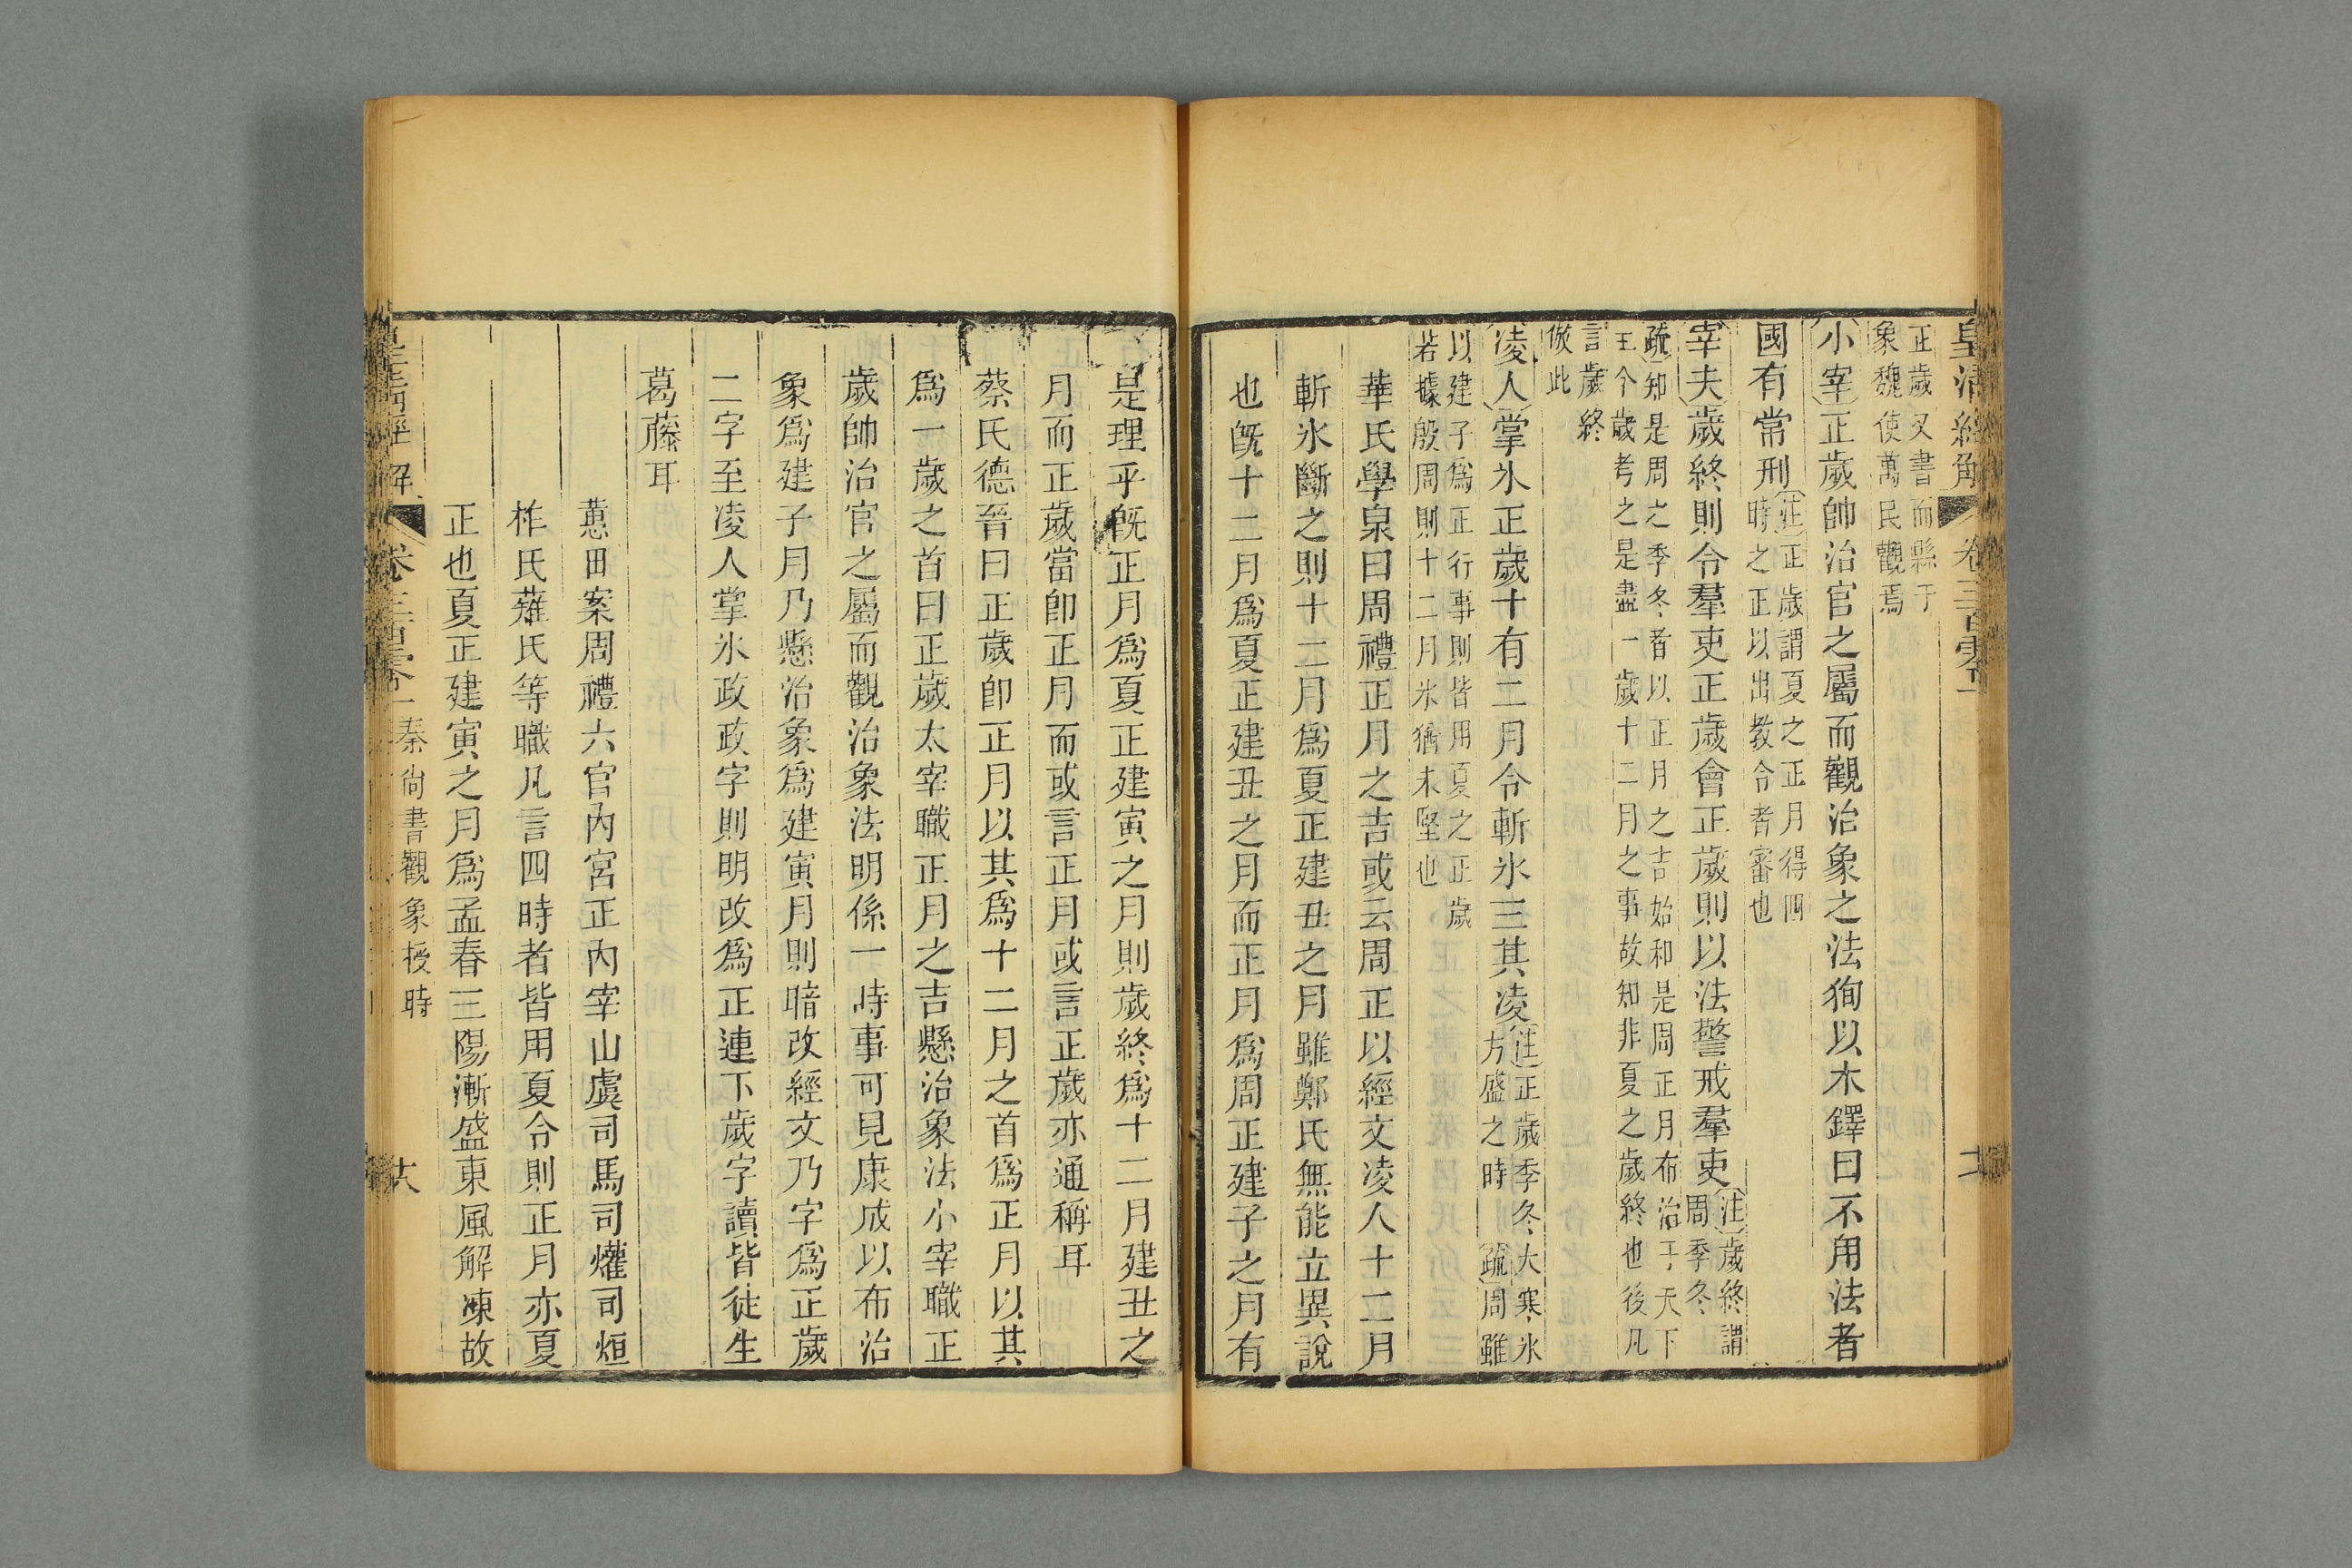 皇清經解 卷三百零一
正歲又書而縣于
象魏使萬民觀焉
小宰正歲帥治官之屬而觀治象之法狥以木鐸曰不用法者
國有常刑注正歲謂夏之正月得四
時之正以出教令者審也
宰夫歲終則令羣吏正歲會正歲則以法警戒羣吏注歲終謂
周季冬
疏知是周之季冬者以正月之吉始和是周正月布治于天下
王令歲考之是盡一歲十二月之事故知非夏之歲終也後凡
言歲終
倣此
凌人掌氷正歲十有二月令斬氷三其凌注正歲季冬大寒氷
方盛之時 疏周雖
以建子爲正行事則皆用夏之正歲
若據殷周則十二月氷猶未堅也
華氏學泉曰周禮正月之吉或云周正以經文凌人十二月
斬氷斷之則十二月爲夏正建丑之月雖鄭氏無能立異說
也旣十二月爲夏正建丑之月而正月爲周正建子之月有
是理乎旣正月爲夏正建寅之月則歲終爲十二月建丑之
月而正歲當卽正月而或言正月或言正歲亦通稱耳
蔡氏德晉曰正歲卽正月以其爲十二月之首爲正月以其
爲一歲之首曰正歲太宰職正月之吉懸治象法小宰職正
歲帥治官之屬而觀治象法明係一時事可見康成以布治
象爲建子月乃懸治象爲建寅月則暗改經文乃字爲正歲
二字至凌人掌氷政政字則明改爲正連下歲字讀皆徒生
葛藤耳
蕙田案周禮六官內宮正內宰山虞司馬司爟司烜
柞氏薙氏等職凡言四時者皆用夏令則正月亦夏
正也夏正建寅之月爲孟春三陽漸盛東風解凍故
皇清經解 卷三百零一 秦尙書觀象授時 六